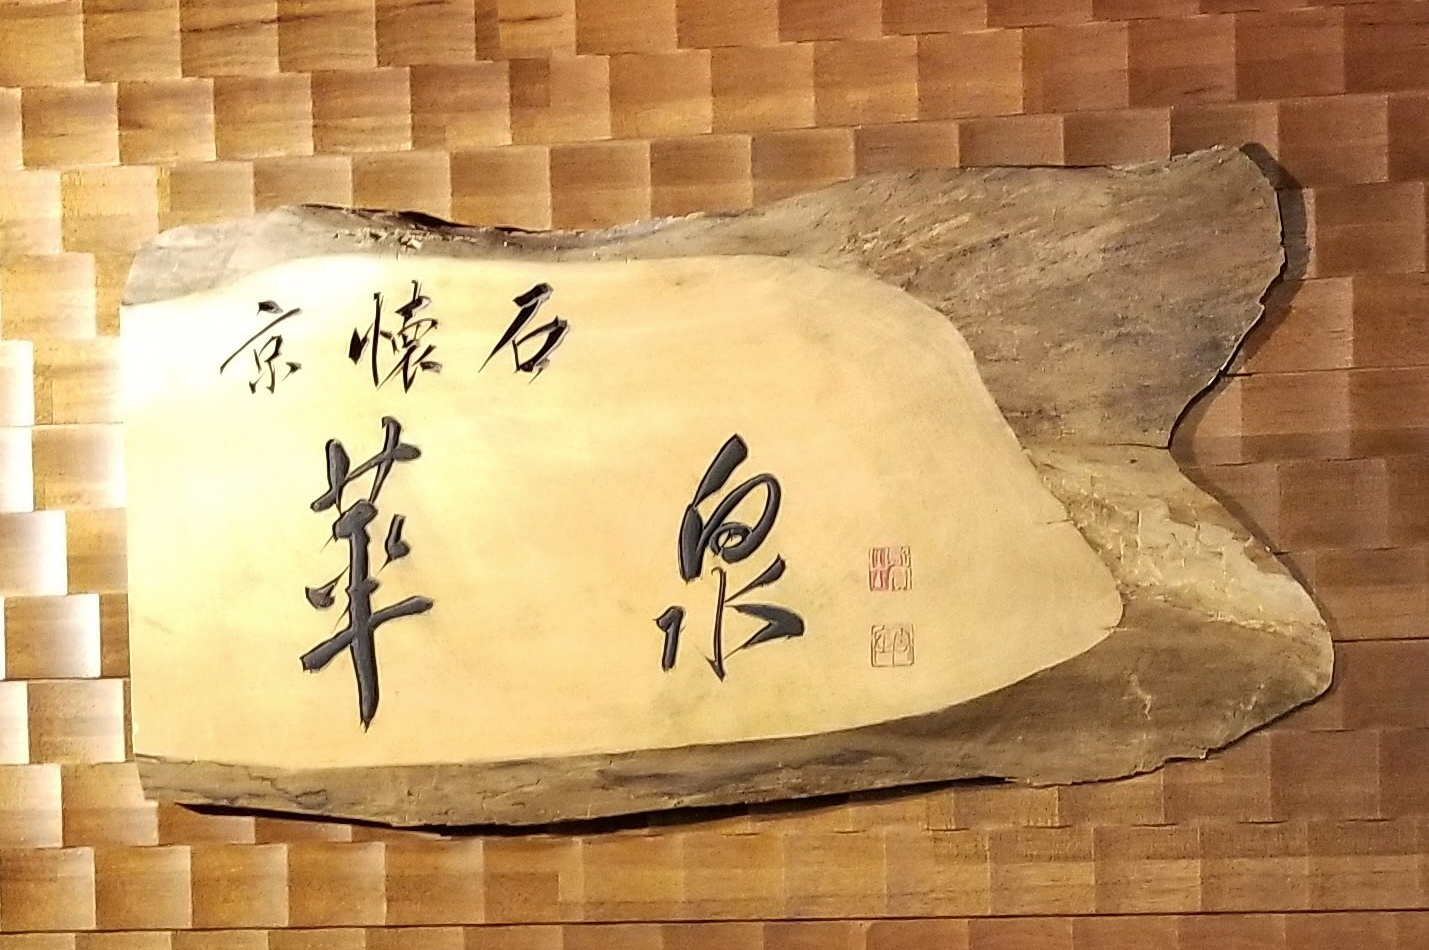 京懐石
華泉